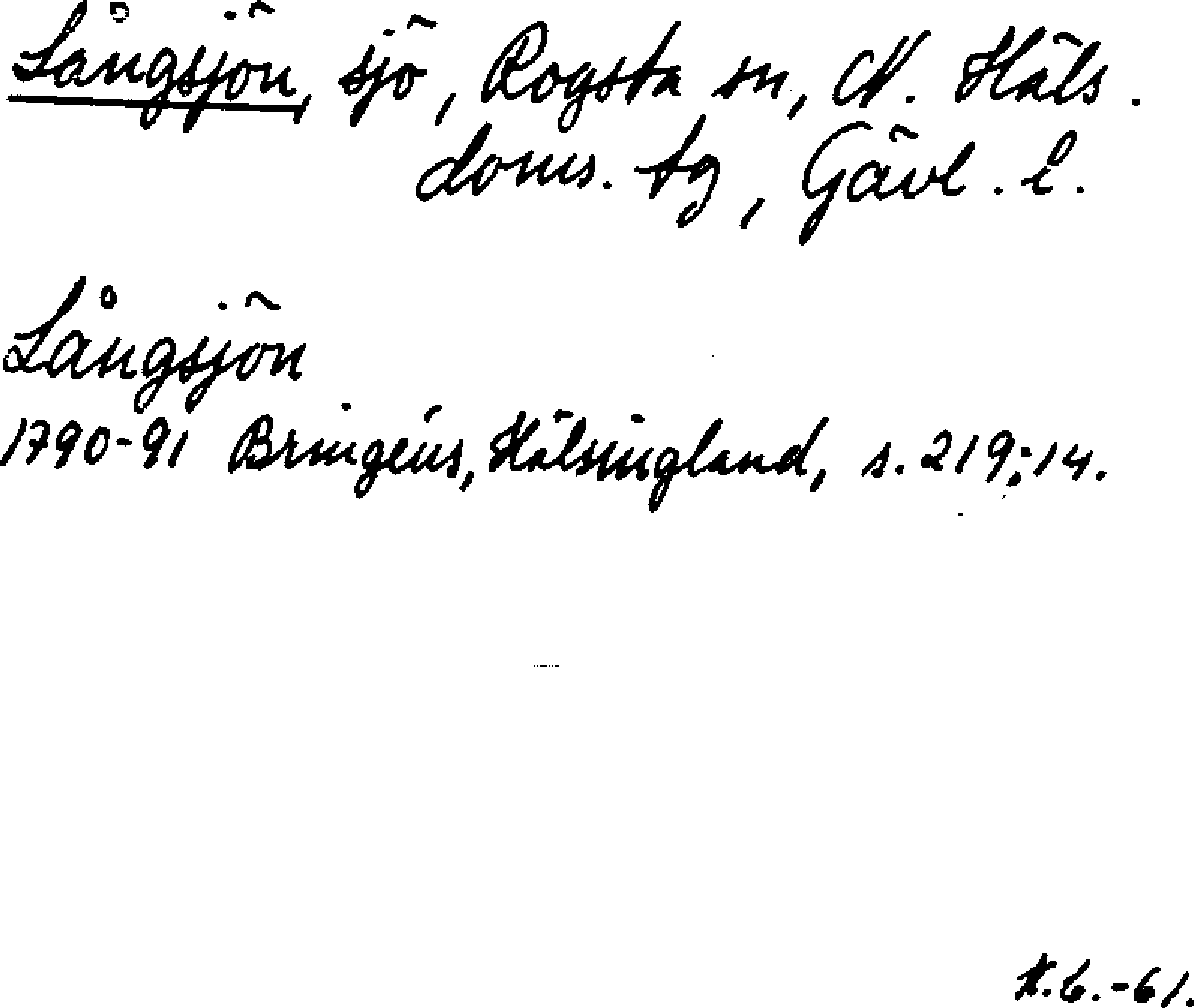 Långsjön, sjö, Rogsta sn, N. Häls.
doms. tg, Gävl. l.
Långsjön
1790-91 Bringéus, Hälsingland, s. 219:14.
K.G.-61.